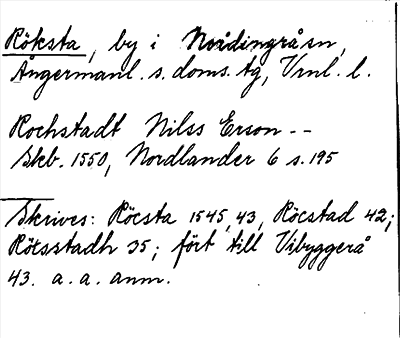 Röksta, by i Nordingrå sn,
Ångermanl. s. doms. tg, Vrnl. l.
Rochstadt Nilss Erson --
Skb. 1550, Nordlander 6 s. 195
Skrives: Röcsta 1545, 43, Röcstad 42;
Rötsstadh 35; fört till Vibyggerå
43. a. a. anm.